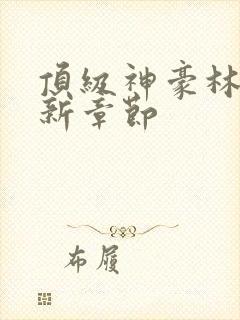 頂級神豪林
新章節
布履